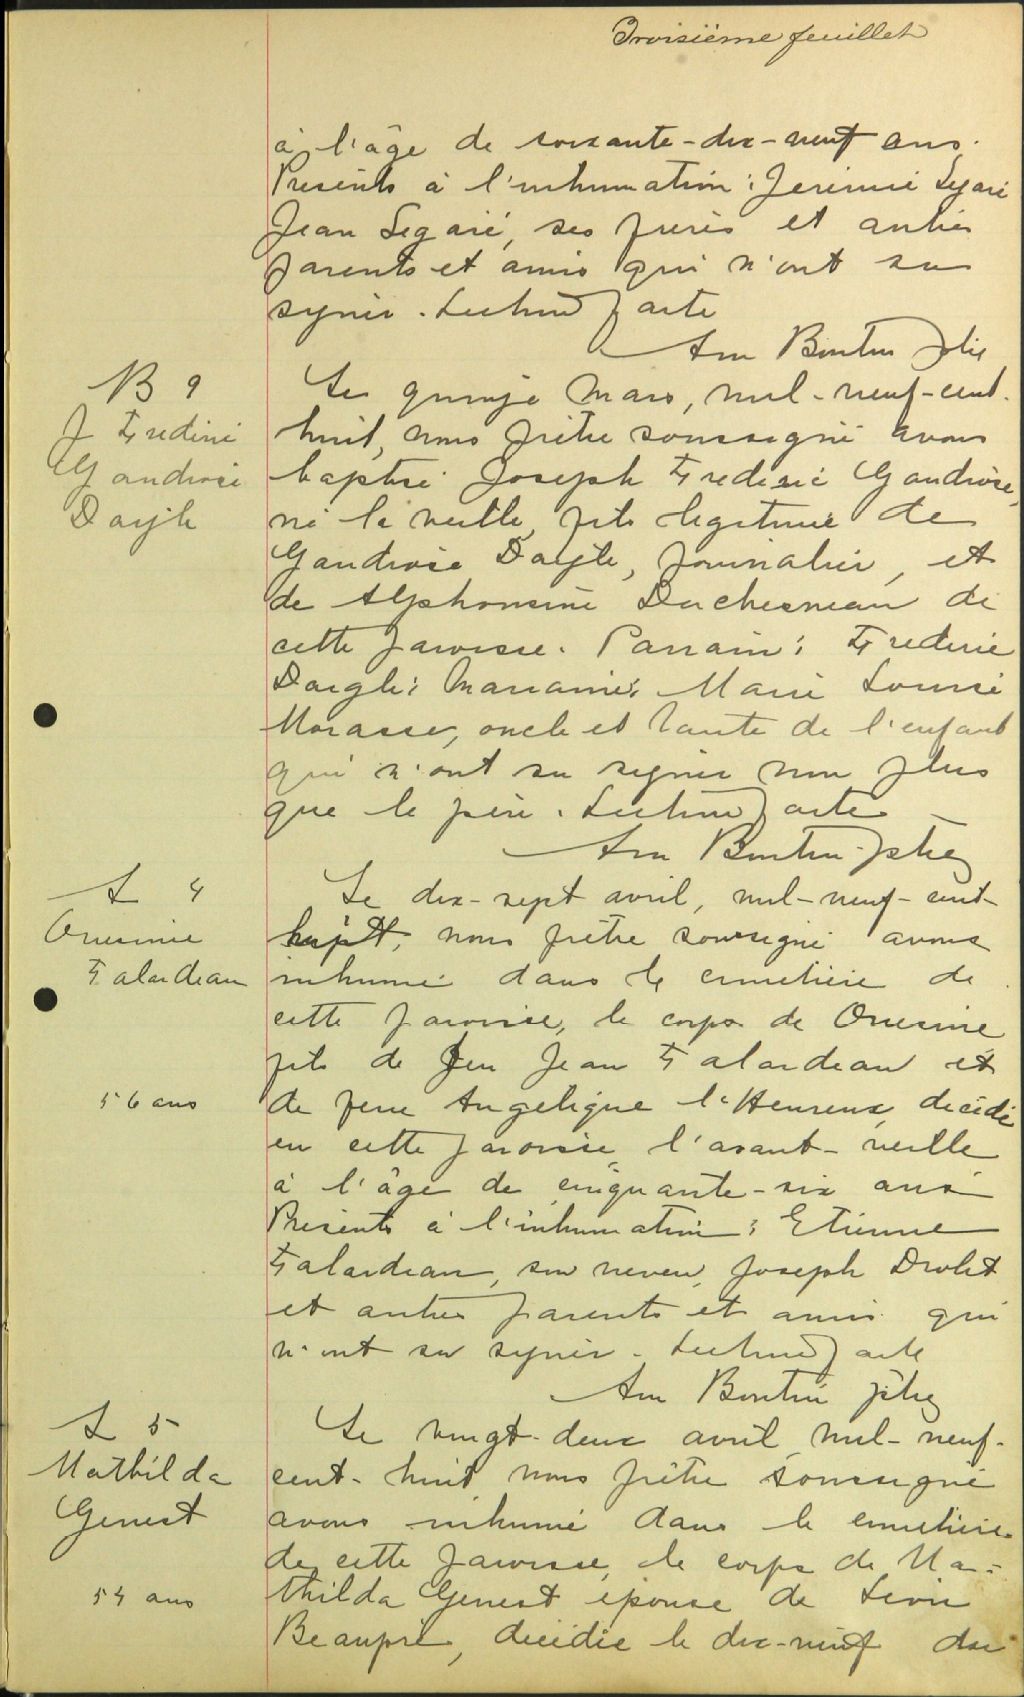 Troisième feuillet
à l'âge de soixante-dix-neuf ans.
Présents à l'inhumation : Jérémie Légaré
Jean Légaré, ses frères et autres
parents et amis qui n'ont su
signer. Lecture faite
Am Boutin Ptre
B 9
J Frédéric
Gaudiose
Daigle
Le quinze Mars, mil-neuf-cent-
huit, nous prêtre soussigné avons
baptisé Joseph Frédéric Gaudiose,
né la veille, fils légitime de
Gaudiose Daigle, journalier, et
de Alphonsine Duchesneau de
cette paroisse. Parrain : Frédéric
Daigle; Marraine; Marie Louise
Morasse, oncle et tante de l'enfant
qui n'ont su signer non plus
que le père. Lecture faite
Am Boutin Ptre
S 4
Onésime
Falardeau
56 ans
Le dix-sept avril, mil-neuf-cent-
huit, nous prêtre soussigné avons
inhumé dans le cimetière de
cette paroisse, le corps de Onésime
fils de feu Jean Falardeau et
de feue Angélique l'Heureux, décédé
en cette paroisse, l'avant-veille
à l'âge de cinquante-six ans
Présents à l'inhumation : Etienne
Falardeau, son neveu, Joseph Drolet
et autres parents et amis qui
n'ont su signer. Lecture faite
Am Boutin Ptre
S 5
Mathilda
Genest
54 ans
Le vingt-deux avril, mil-neuf-
cent-huit nous prêtre soussigné
avons inhumé dans le cimetière
de cette paroisse, le corps de Ma=
thilda Genest épouse de Léon
Beaupré, décédée le dix-neuf du